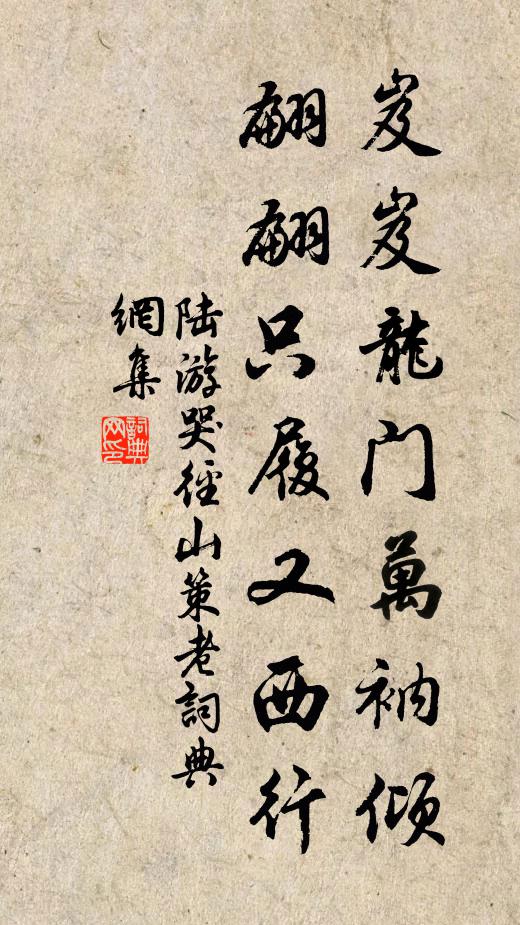 岌岌龍門萬衲傾
翩翩只履又西行
陆游哭径山策老詞典
網集
詞典
网印